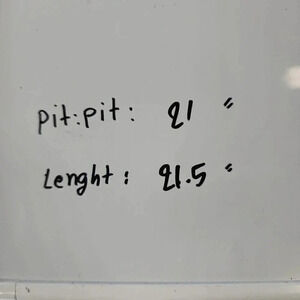 pit:pit: 21 "
Lenght: 21.5 "